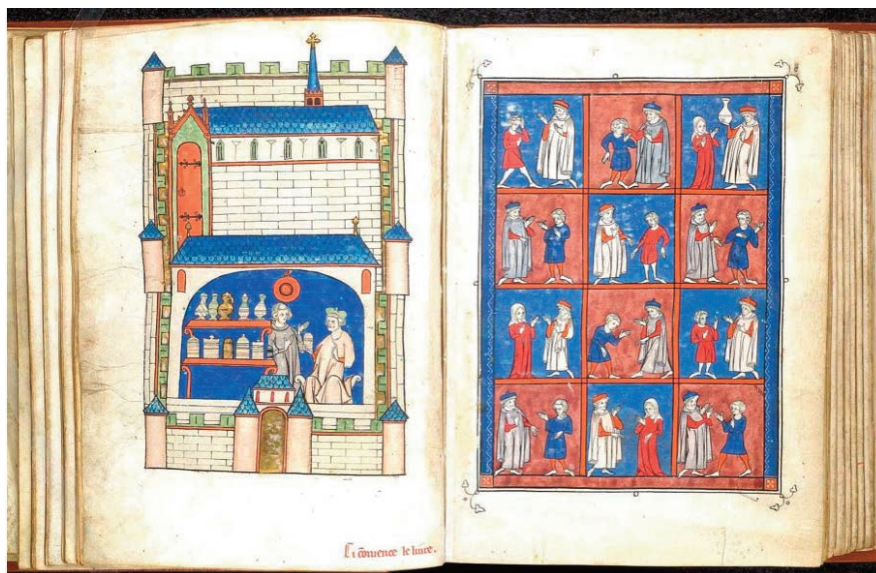 Ci cōmence le liure.